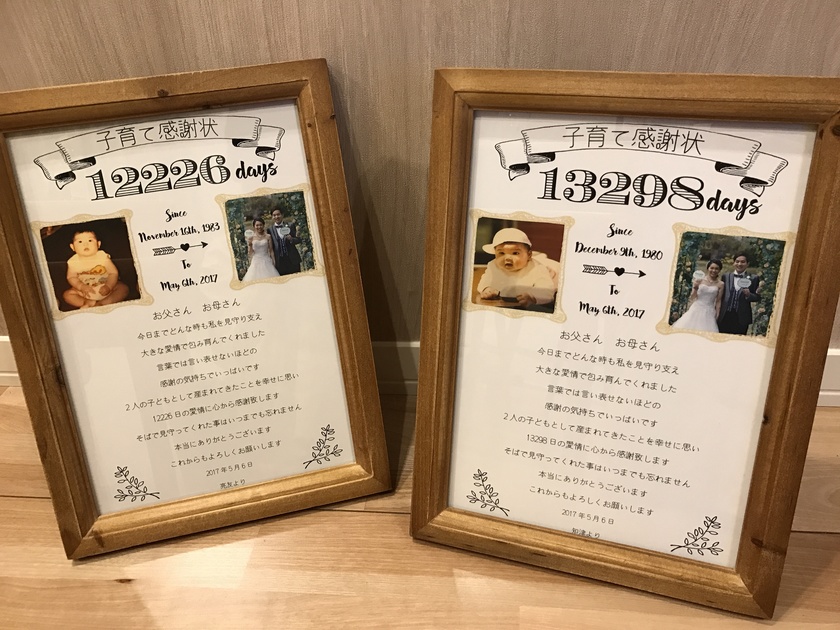 子育て感謝状
12226 days
Since
November 16th, 1983
To
May 6th, 2017
お父さん お母さん
今日までどんな時も私を見守り支え
大きな愛情で包み育んでくれました
言葉では言い表せないほどの
感謝の気持ちでいっぱいです
2人の子どもとして産まれてきたことを幸せに思い
12226日の愛情に心から感謝致します
そばで見守ってくれた事はいつまでも忘れません
本当にありがとうございます
これからもよろしくお願いします
2017年5月6日
亮友より
子育て感謝状
13298 days
Since
December 9th, 1980
To
May 6th, 2017
お父さん お母さん
今日までどんな時も私を見守り支え
大きな愛情で包み育んでくれました
言葉では言い表せないほどの
感謝の気持ちでいっぱいです
2人の子どもとして産まれてきたことを幸せに思い
13298日の愛情に心から感謝致します
そばで見守ってくれた事はいつまでも忘れません
本当にありがとうございます
これからもよろしくお願いします
2017年5月6日
より